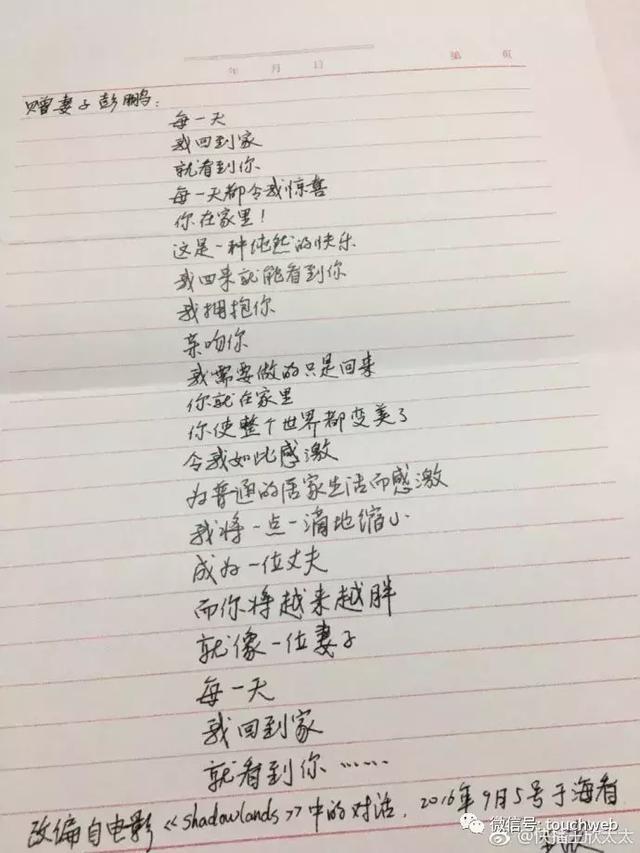 年 月 日 第 页
赠妻子彭鹏：
每一天
我回到家
就看到你
每一天都令我惊喜
你在家里！
这是一种纯然的快乐
我回来就能看到你
我拥抱你
亲吻你
我需要做的只是回来
你就在家里
你使整个世界都变美了
令我如此感激
为普通的居家生活而感激
我将一点一滴地缩小
成为一位丈夫
而你将越来越胖
就像一位妻子
每一天
我回到家
就看到你……
改编自电影《shadowlands》中的对话．2016年9月5号于海看
微信号: touchweb
@快播王欣太太